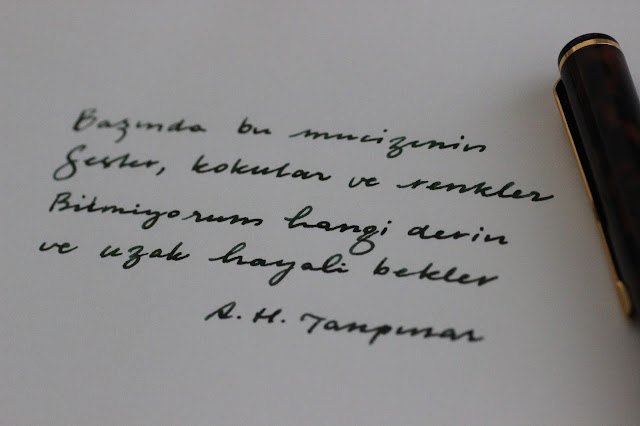 Başında bu mucizenin
Sesler, kokular ve renkler
Bilmiyorum hangi derin
ve uzak hayali bekler
A. H. Tanpınar